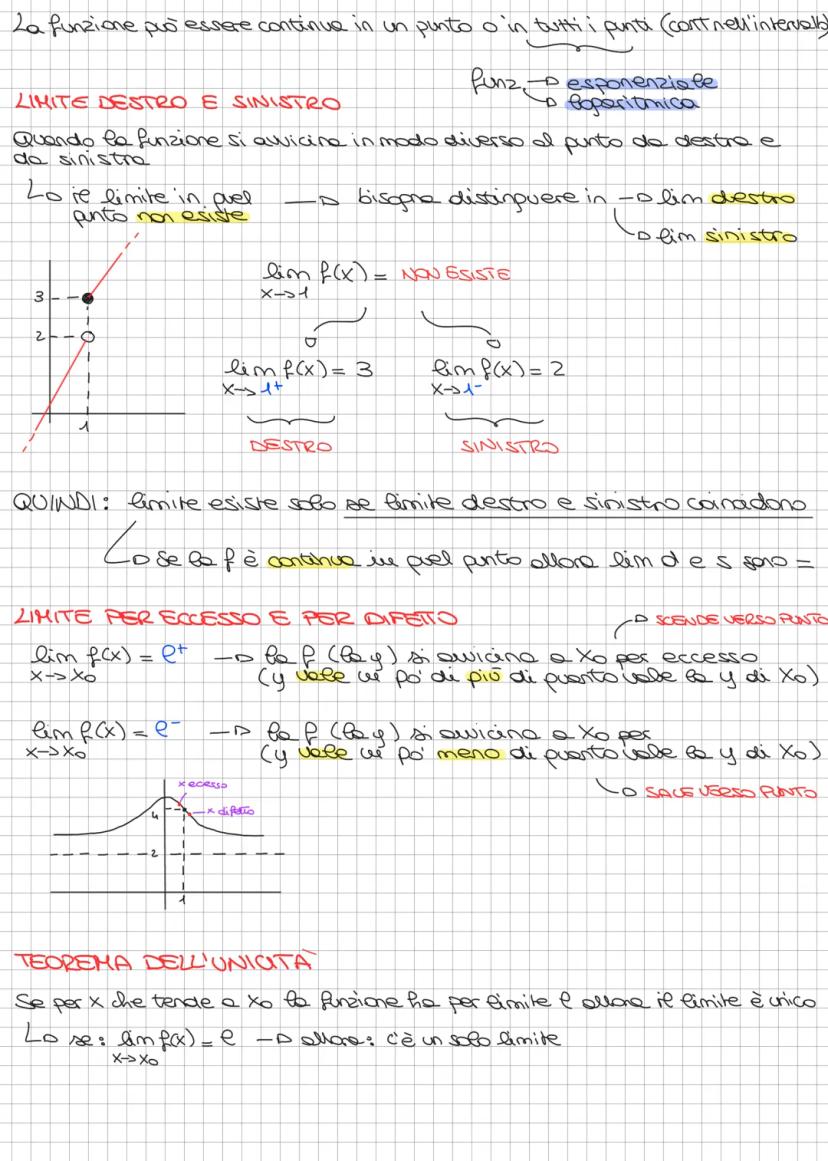 La funzione può essere continua in un punto o in tutti i punti (cont nell'intervallo)
funz → esponenziale
→ logaritmica
LIMITE DESTRO E SINISTRO
Quando la funzione si avvicina in modo diverso al punto da destra e
da sinistra
↳ il limite in quel → bisogna distinguere in → lim destro
punto non esiste
→ lim sinistro
lim f(x) = NON ESISTE
x→1
3
2
1
lim f(x) = 3 lim f(x) = 2
x→1+ x→1-
DESTRO SINISTRO
QUINDI: limite esiste solo se limite destro e sinistro coincidono
↳ se la f è continua in quel punto allora lim d e s sono =
LIMITE PER ECCESSO E PER DIFETTO
→ SCENDE VERSO PUNTO
lim f(x) = l+ → la f (la y) si avvicina a x0 per eccesso
x→x0 (y vale un po' di più di quanto vale la y di x0)
lim f(x) = l- → la f (la y) si avvicina a x0 per
x→x0 (y vale un po' meno di quanto vale la y di x0)
→ SALE VERSO PUNTO
x ecesso
4 x difetto
2
1
TEOREMA DELL'UNICITÀ
Se per x che tende a x0 la funzione ha per limite l allora il limite è unico
↳ se: lim f(x) = l → allora: c'è un solo limite
x→x0